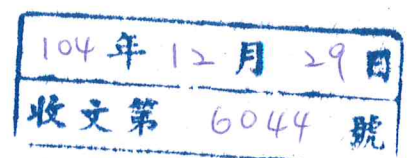 104年12月29日
收文第6044號